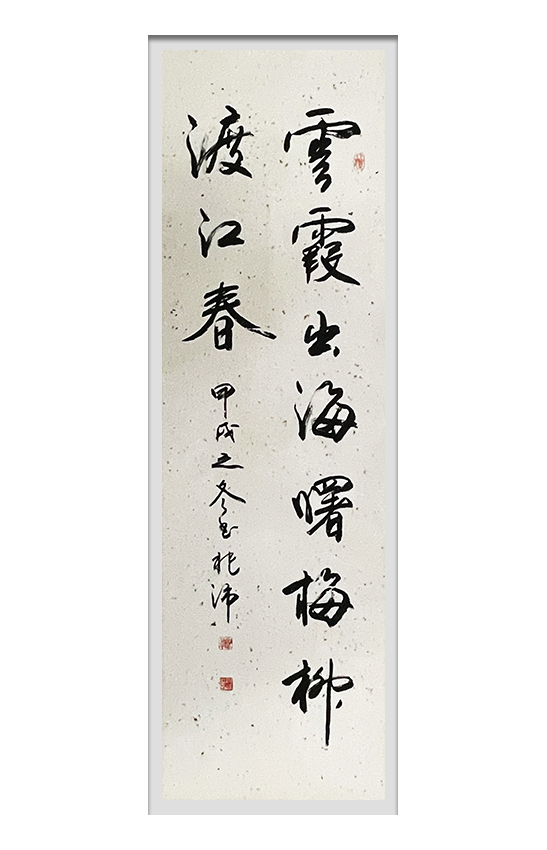 雲霞出海曙梅柳
渡江春
甲戌之冬書於沛